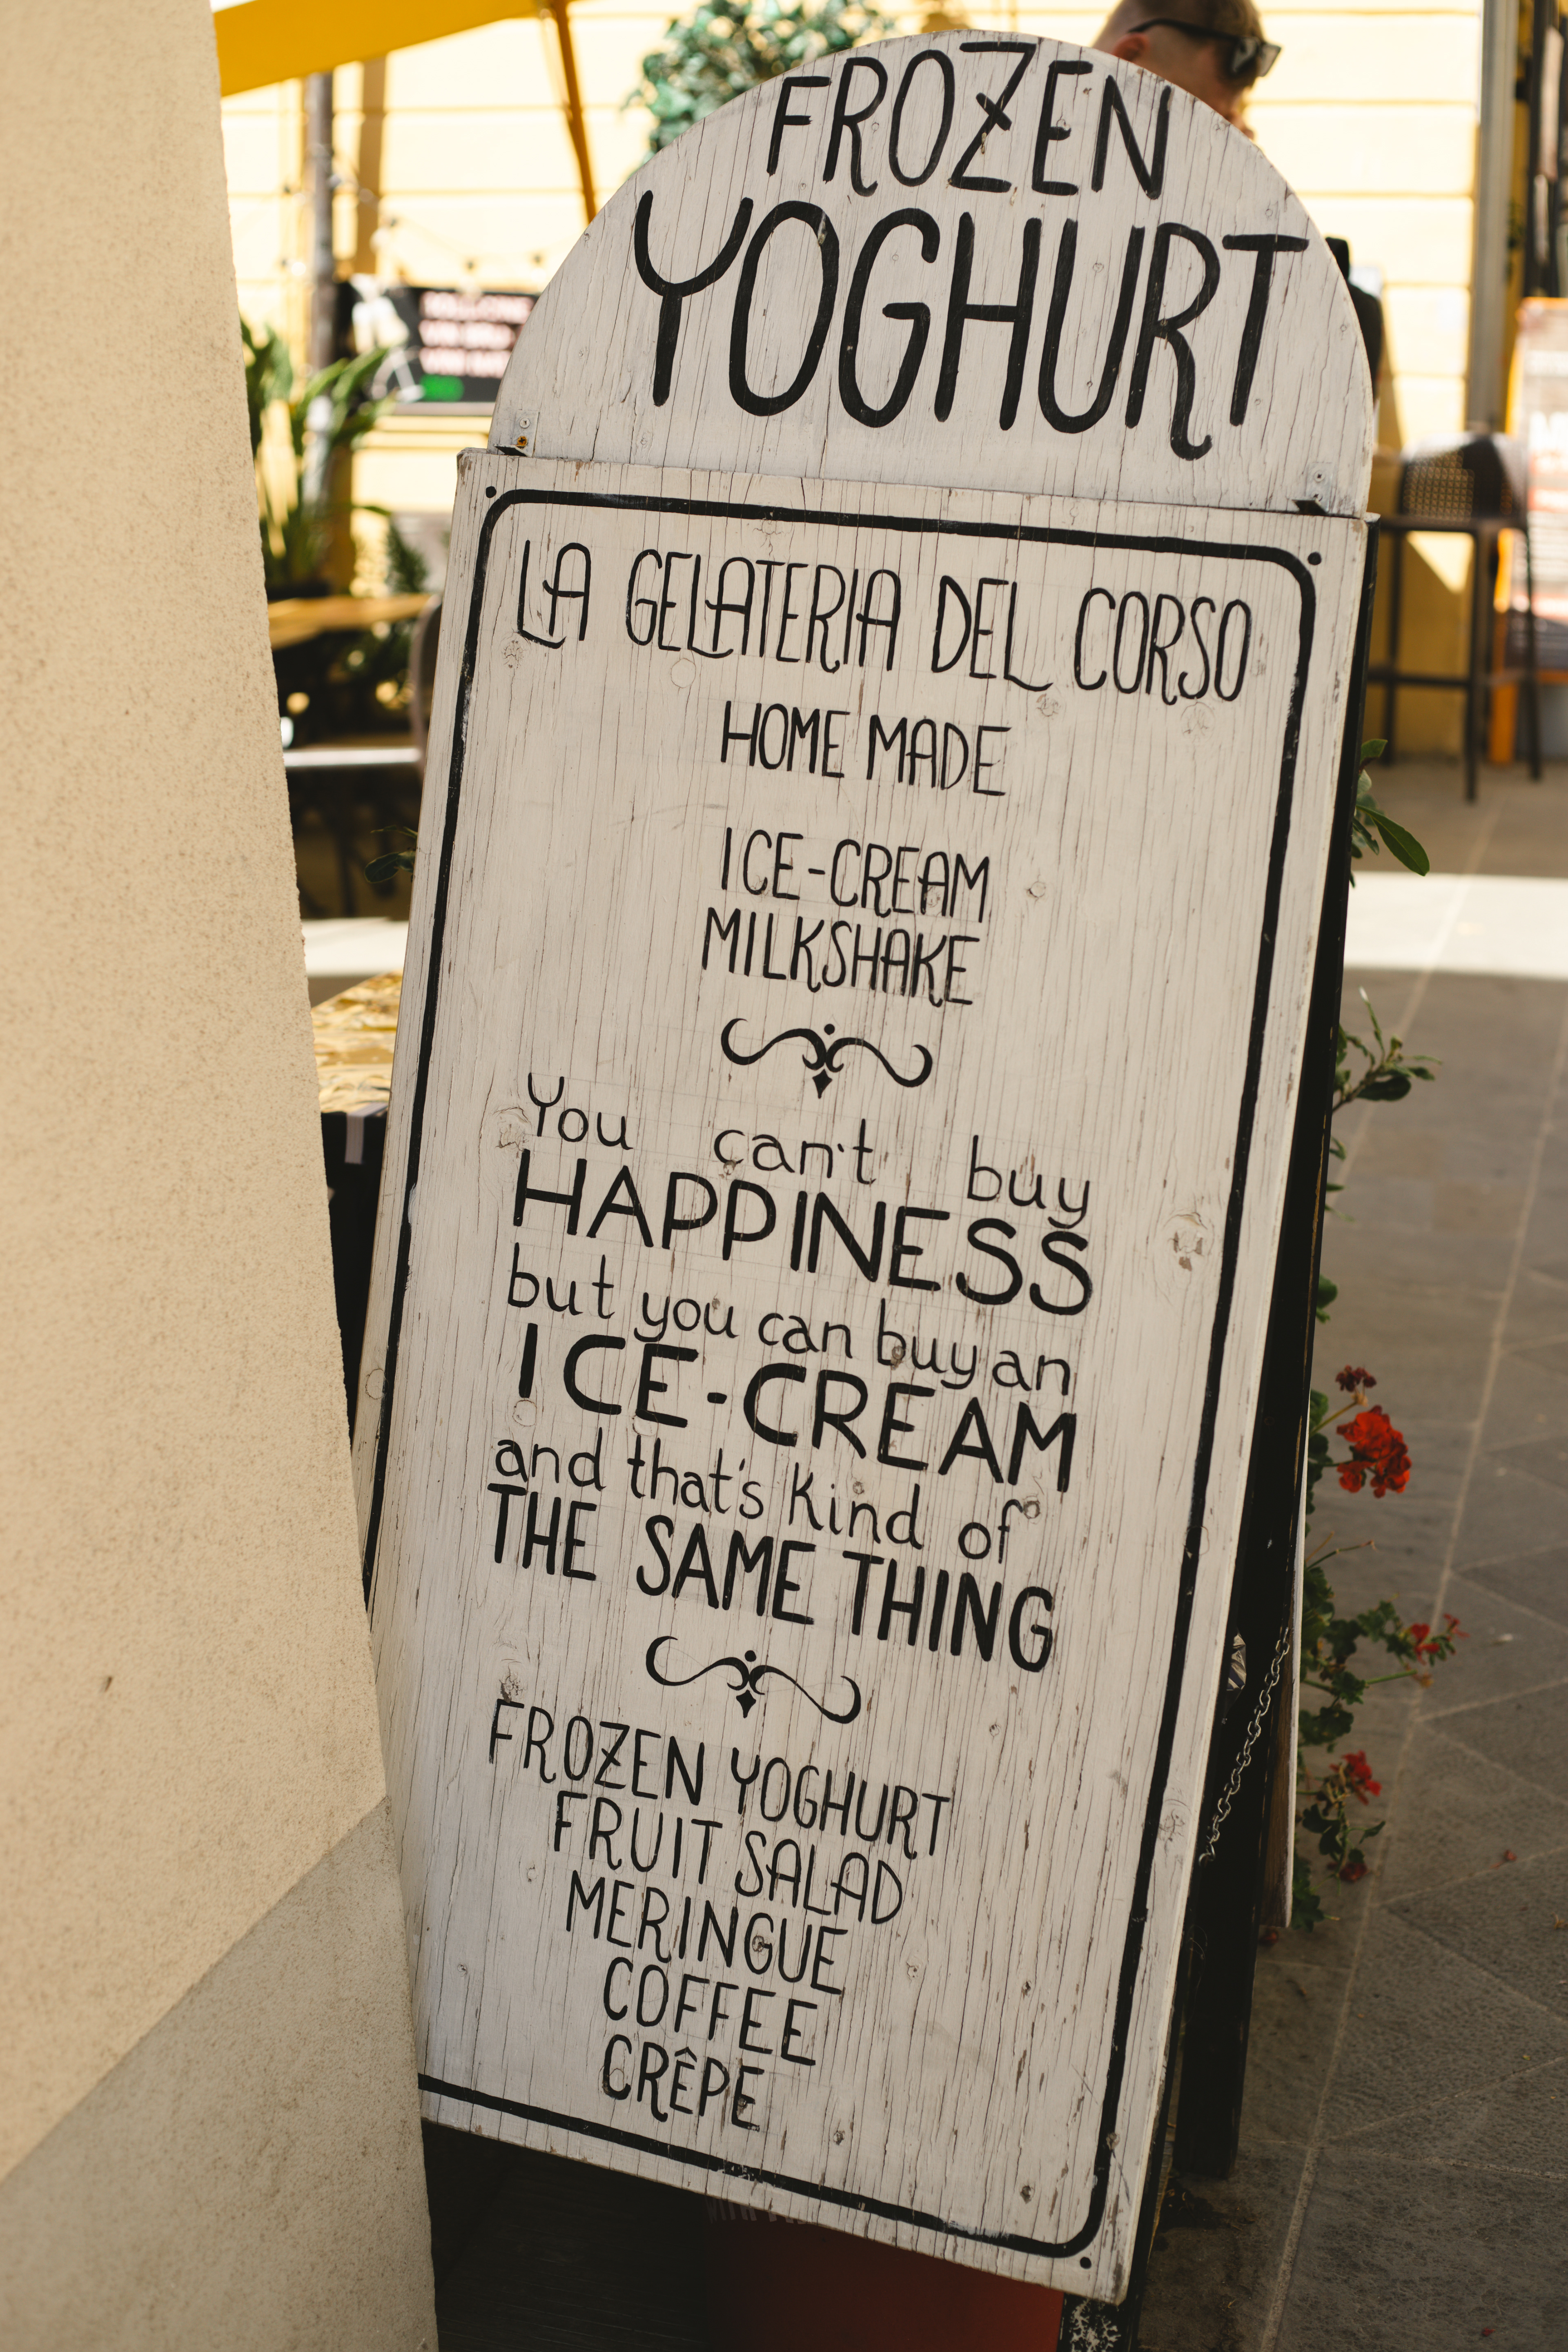 FROZEN
YOGHURT
LA GELATERIA DEL CORSO
HOME MADE
ICE-CREAM
MILKSHAKE
You can't buy
HAPPINESS
but you can buy an
ICE-CREAM
and that's kind of
THE SAME THING
FROZEN YOGHURT
FRUIT SALAD
MERINGUE
COFFEE
CRÊPE